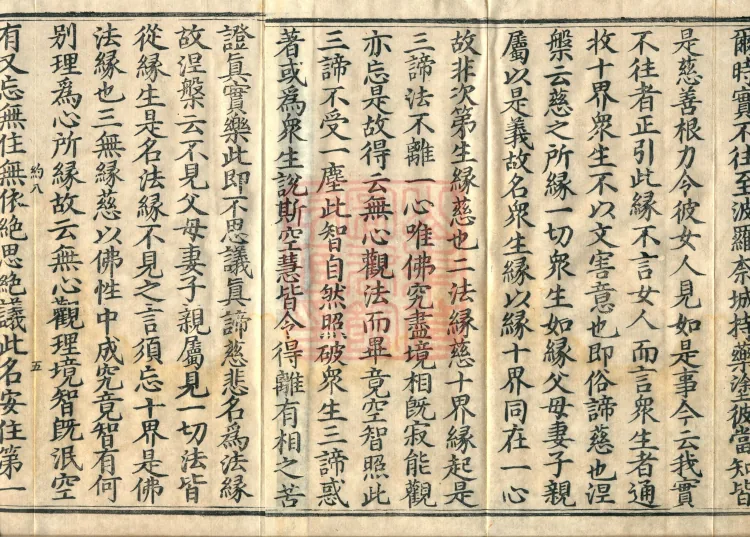 爾時實不往至波羅奈城持藥塗彼當知皆
是慈善根力令彼女人見如是事今云我實
不往者正引此縁不言女人而言衆生者通
收十界衆生不以文害意也即俗諦慈也涅
槃云慈之所縁一切衆生如縁父母妻子親
屬以是義故名衆生縁以縁十界同在一心
故非次第生縁慈也二法縁慈十界縁起是
三諦法不離一心唯佛究盡境相旣寂能觀
亦忘是故得云無心觀法而畢竟空智照此
三諦不受一塵此智自然照破衆生三諦惑
著或爲衆生說斯空慧皆令得離有相之苦
證眞實樂此即不思議眞諦慈悲名爲法縁
故涅槃云不見父母妻子親屬見一切法皆
從縁生是名法縁不見之言須忘十界是佛
法縁也三無縁慈以佛性中成究竟智有何
別理爲心所縁故云無心觀理境智旣泯空
約八
五
有又忘無住無依絶思絶議此名安住第一